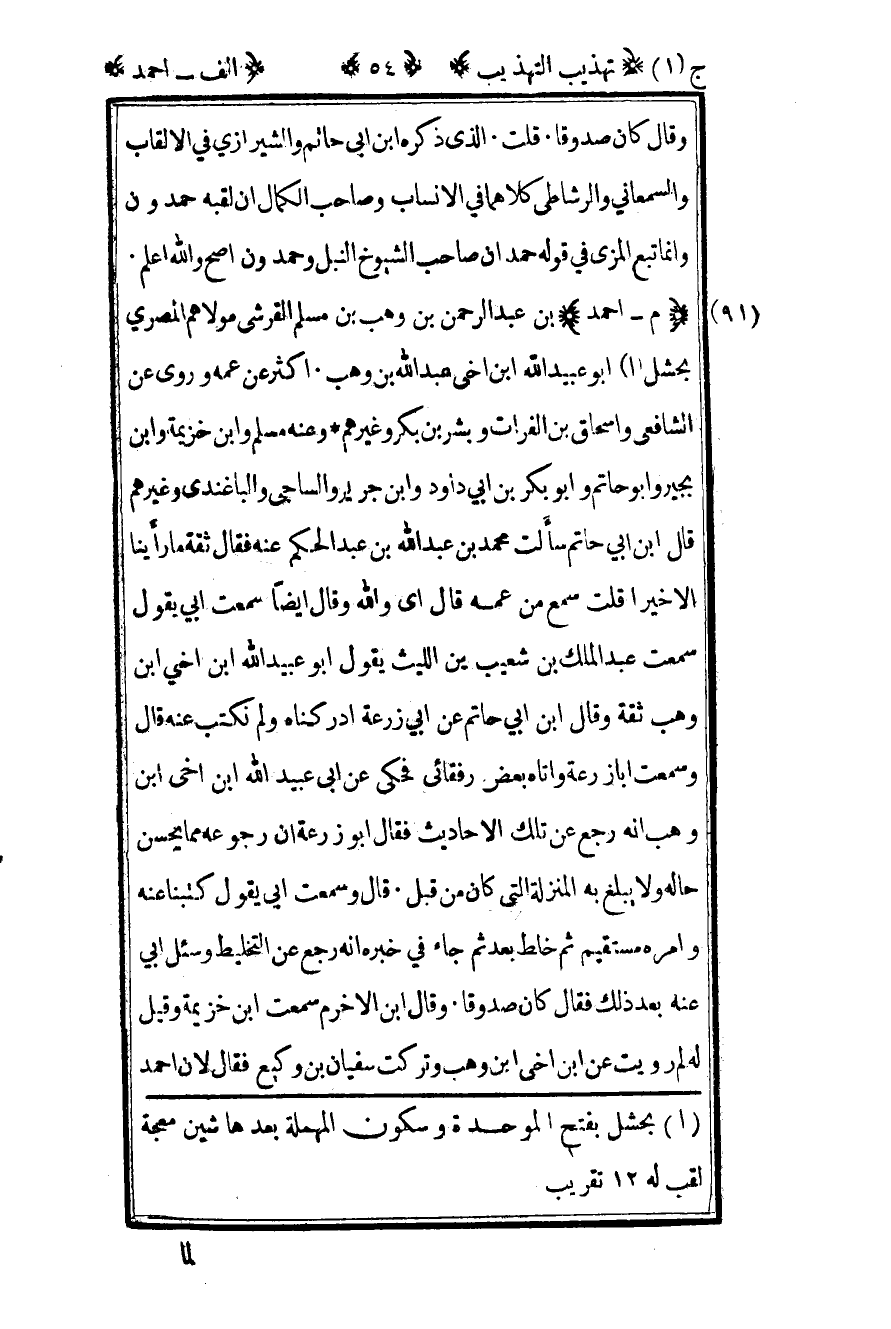 ج (١) ﴿ تهذيب التهذيب ﴾ ﴿ ٥٤ ﴾ ﴿ الف ـ احمد ﴾
وقال كان صدوقا ٠ قلت ٠ الذى ذكره ابن ابي حاتم والشيرازي في الالقاب
والسمعاني والرشاطى كلاهما في الانساب وصاحب الكمال ان لقبه حمدون
وانما تبع المزى في قوله حمدان صاحب الشيوخ النبل وحمدون اصح والله اعلم ٠
(٩١) ﴿ م ـ احمد ﴾ بن عبدالرحمن بن وهب بن مسلم القرشى مولاهم المصري
بحشل (١) ابو عبيدالله ابن اخى عبدالله بن وهب ٠ اكثر عن عمه و روى عن
الشافعى واسحاق بن الفرات و بشر بن بكر وغيرهم * وعنه مسلم وابن خزيمة وابن
بجير وابو حاتم و ابو بكر بن ابي داود وابن جرير والساجى والباغندى وغيرهم
قال ابن ابي حاتم سألت محمد بن عبدالله بن عبدالحكم عنه فقال ثقة مارأينا
الاخيرا قلت سمع من عمه قال اى والله وقال ايضاً سمعت ابي يقول
سمعت عبدالملك بن شعيب بن الليث يقول ابو عبيدالله ابن اخي ابن
وهب ثقة وقال ابن ابي حاتم عن ابي زرعة ادركناه ولم نكتب عنه قال
وسمعت ابازرعة واتاه بعض رفقائى فحكى عن ابى عبيد الله ابن اخى ابن
وهب انه رجع عن تلك الاحاديث فقال ابو زرعة ان رجوعه مما يحسن
حاله ولا يبلغ به المنزلة التى كان من قبل ٠ قال وسمعت ابي يقول كتبنا عنه
و امره مستقيم ثم خلط بعد ثم جاء في خبره انه رجع عن التخليط وسئل ابي
عنه بعد ذلك فقال كان صدوقا ٠ وقال ابن الاخرم سمعت ابن خزيمة وقيل
له لم رويت عن ابن اخى ابن وهب وتركت سفيان بن وكيع فقال لان احمد
(١) بحشل بفتح الموحدة وسكون المهملة بعدها شين معجمة
لقب له ١٢ تقريب
لما